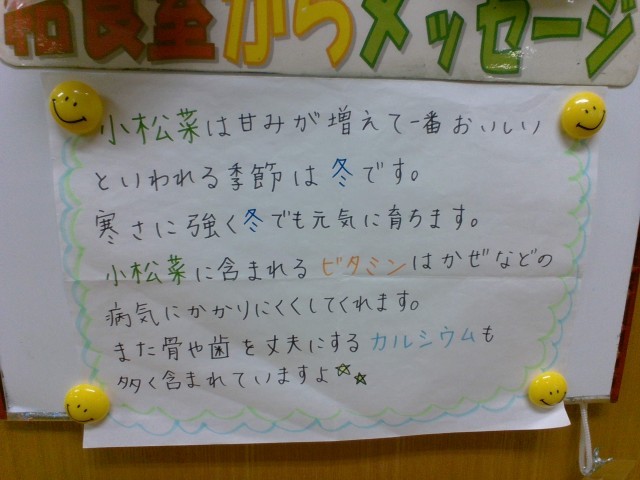 相良室からメッセージ
小松菜は甘みが増えて一番おいしい
といわれる季節は冬です。
寒さに強く冬でも元気に育ちます。
小松菜に含まれるビタミンはかぜなどの
病気にかかりにくくしてくれます。
また骨や歯を丈夫にするカルシウムも
多く含まれていますよ☆☆